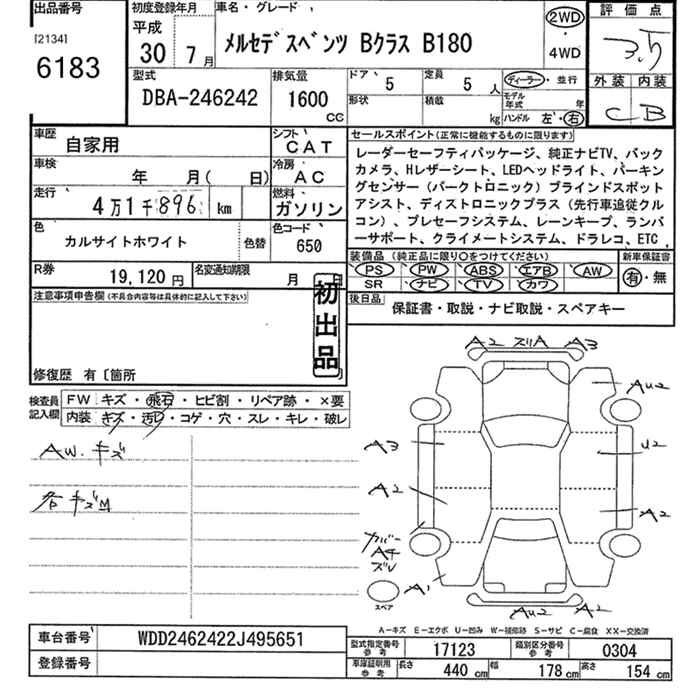 出品番号
[2134]
6183
初度登録年月
平成
30 年 7 月
車名・グレード
メルセデスベンツ Bクラス B180
2WD
・
4WD
評価点
3.5
外装 内装
C B
型式
DBA-246242
排気量
1600
CC
ドア 5
形状
定員 5 人
積載 kg
ディーラー・並行
モデル年式 年
ハンドル 左・右
車歴
自家用
シフト
CAT
車検
年 月( 日)
冷房
AC
走行
4万1千896 km
燃料
ガソリン
色
カルサイトホワイト
色替
色コード
650
R券
19,120 円
名変通知期限
月 日
セールスポイント(正常に機能するものに限ります)
レーダーセーフティパッケージ、純正ナビTV、バック
カメラ、Hレザーシート、LEDヘッドライト、パーキン
グセンサー(パークトロニック)ブラインドスポット
アシスト、ディストロニックプラス(先行車追従クル
コン)、プレセーフシステム、レーンキープ、ランバ
ーサポート、クライメートシステム、ドラレコ、ETC、
装備品(純正品に限り○をつけてください)
PS PW ABS エアB AW
SR ナビ TV カワ
新車保証書
有・無
後日品
保証書・取説・ナビ取説・スペアキー
注意事項申告欄(不具合内容等は具体的に記入して下さい)
初出品
修復歴 有〔箇所
検査員
記入欄
FW キズ・飛石・ヒビ割・リペア跡・×要
内装 キズ・汚れ・コゲ・穴・スレ・キレ・破レ
AW.キズ
各キズM
A2 ズリA A3
AU2
A3
U2
A2
A2
カバー
Aチ
ズレ
A1
スペア
AU2 A2
A-キズ E-エクボ U-凹み W-補修跡 S-サビ C-腐食 XX-交換済
車台番号
WDD2462422J495651
登録番号
型式指定番号
参考
17123
類別区分番号
参考
0304
車庫証明用
参考
長さ 440 cm
幅 178 cm
高さ 154 cm